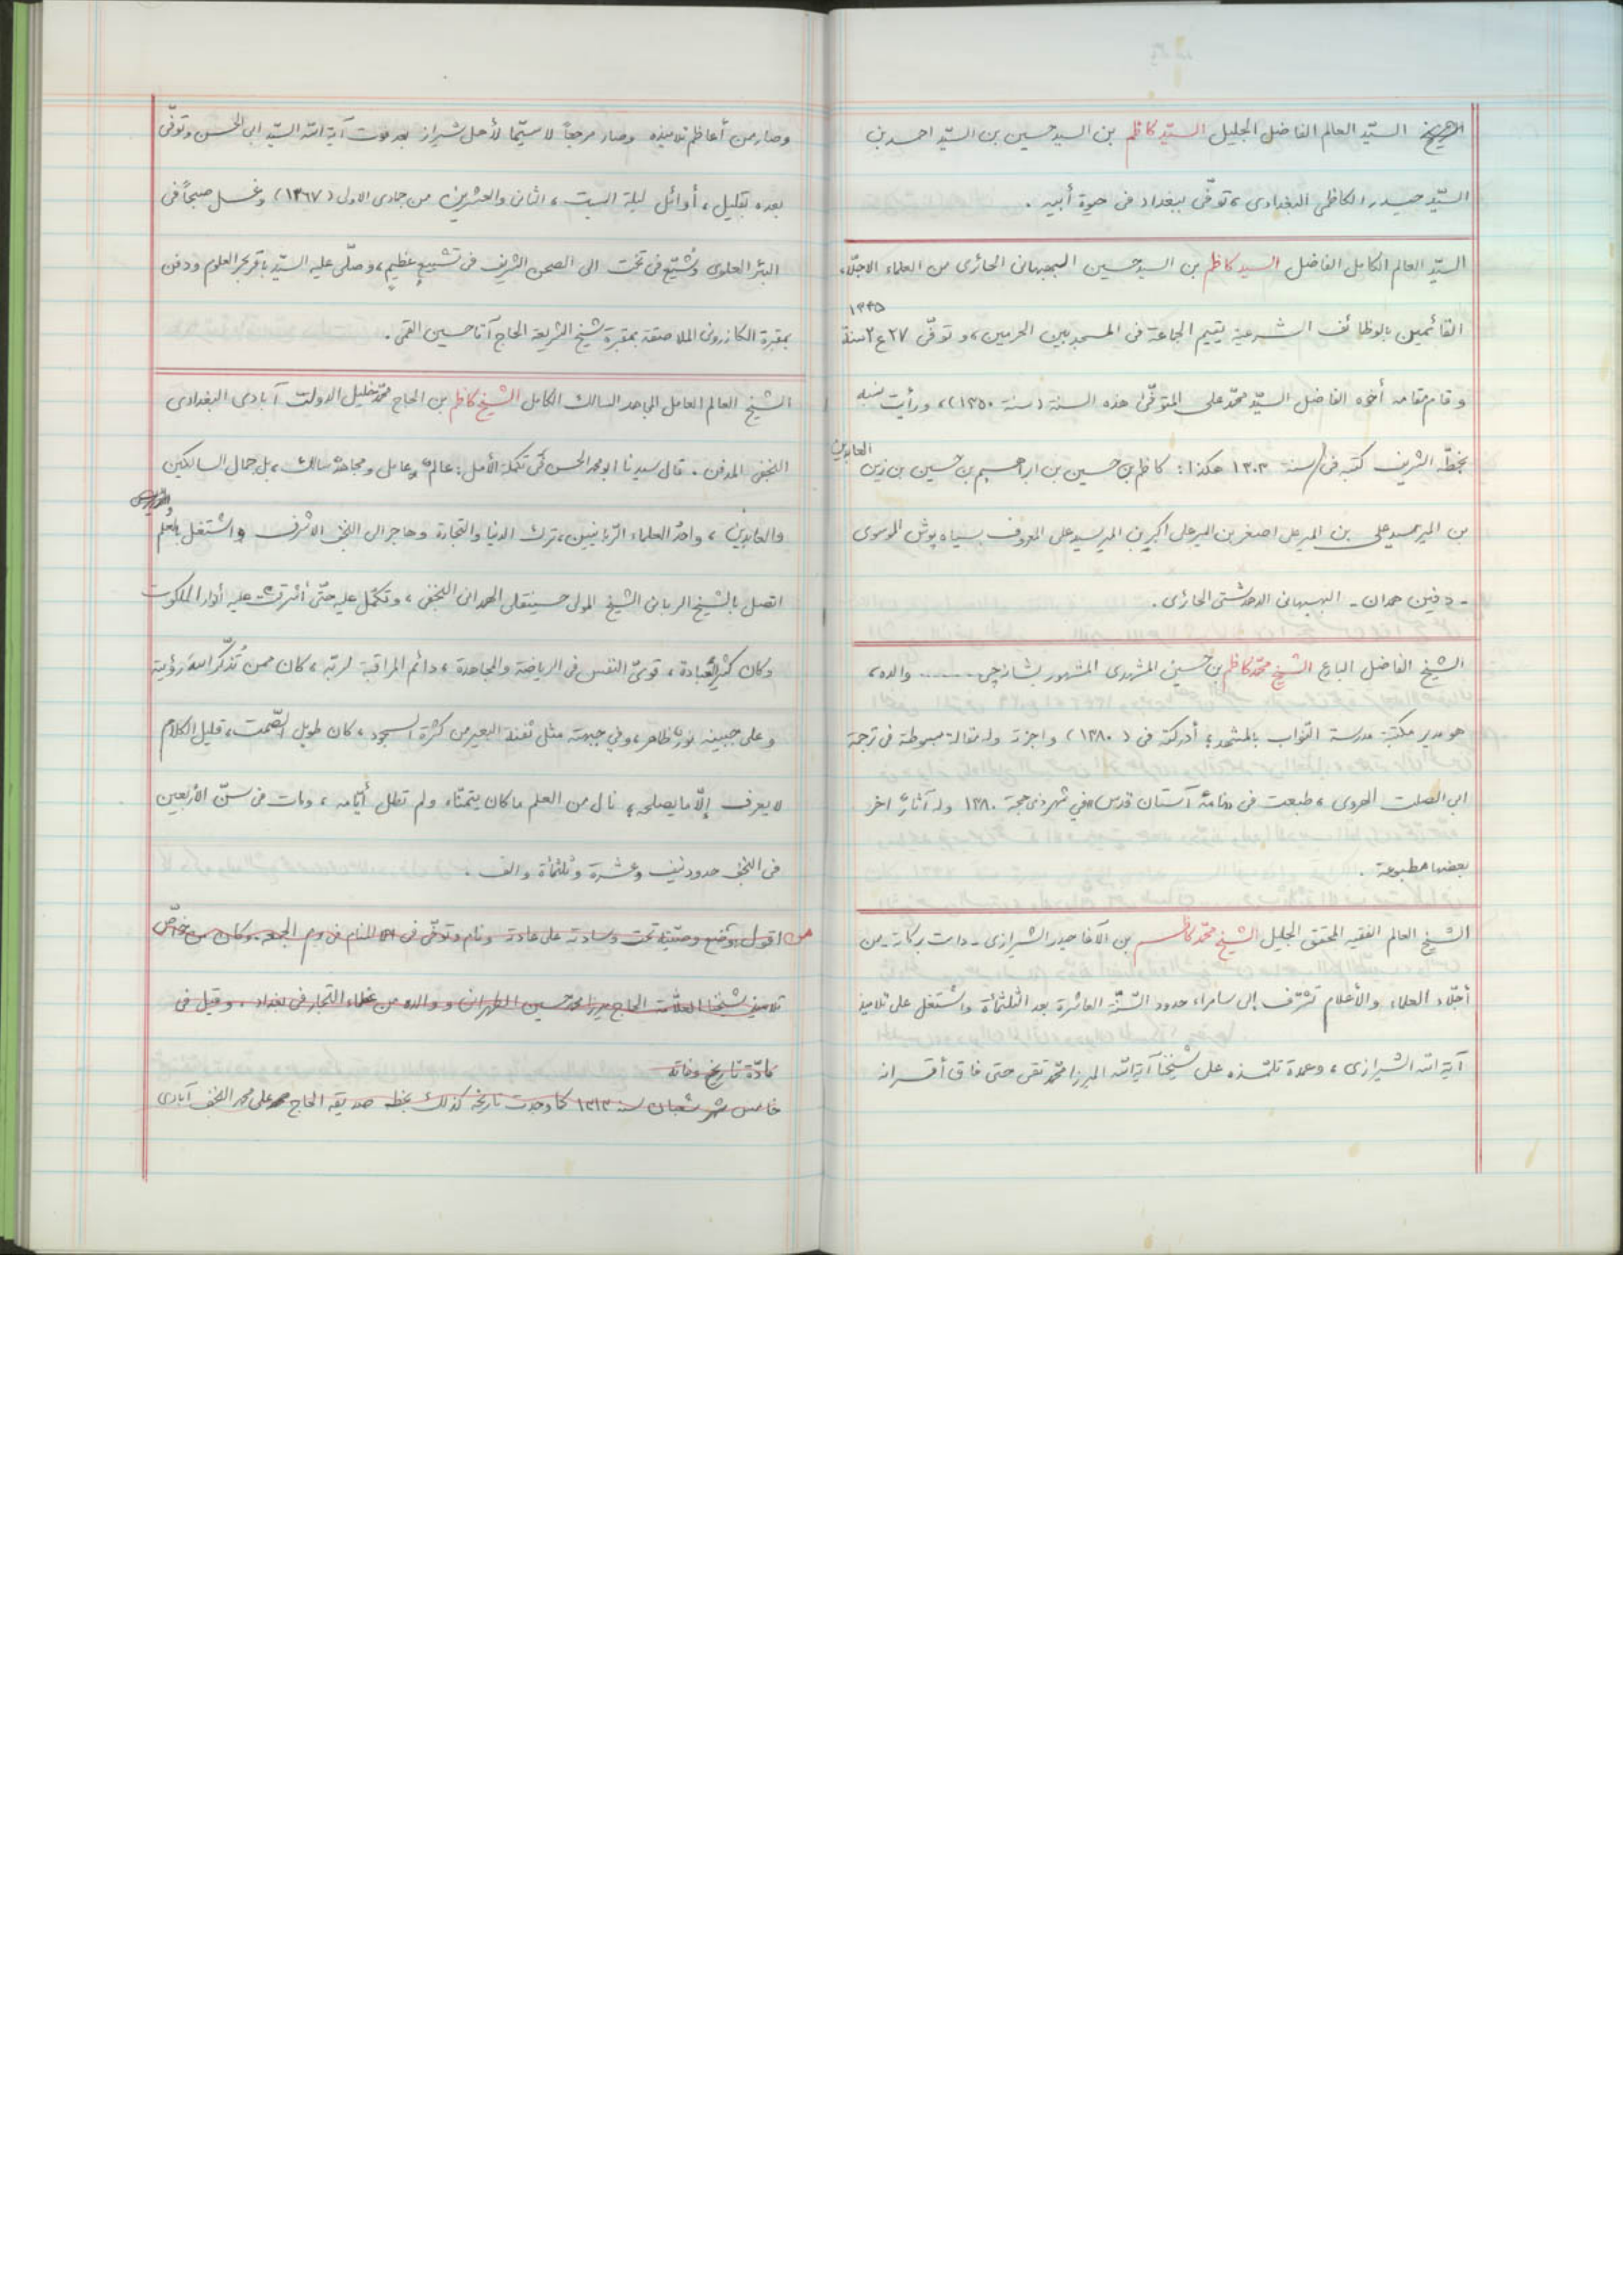 السيّد العالم الفاضل الجليل السيّد كاظم بن السيد حسين بن السيّد احمد بن
السيّد حيدر الكاظمي البغدادي، توفّي ببغداد في حيوة أبيه .
السيّد العالم الكامل الفاضل السيد كاظم بن السيد حسين البهبهاني الحائري من العلماء الاجلّاء
١٣٣٥
القائمين بالوظائف الشرعية يقيم الجماعة في المسجد بين الحرمين، و توفّي ٢٧ ع ٢ سنة
و قام مقامه أخوه الفاضل السيّد محمّد علي المتوفّى هذه السنة (سنة ١٣٥٠)، ورأيت نسبه
بخطّه الشريف كتبه في سنة ١٣٠٣ هكذا : كاظم بن حسين بن ابراهيم بن حسين بن زين العابدين
بن المير سيد علي بن المير علي اصغر بن المير علي اكبر بن المير سيد علي المعروف بسياه پوش الموسوي
- دفين همدان - البهبهاني الدهدشتي الحائري .
الشيخ الفاضل البارع الشيخ محمّد كاظم بن حسين المشهدي المشهور بشانه چي ....... والده،
هو مدير مكتبة مدرسة النوّاب بالمشهد؛ أدركته في (١٣٨٠) واجزته وله مقالة مبسوطة في ترجمة
ابي الصلت الهروي، طبعت في نامهٔ آستان قدس في شهر ذي حجة ١٣٨٠ وله آثارٌ اخر
بعضها مطبوعة .
الشيخ العالم الفقيه المحقق الجليل الشيخ محمّد كاظم بن الآغا حيدر الشيرازي - دامت بركاته - من
أجلّاء العلماء والأعلام تشرّف إلى سامراء حدود السّنة العاشرة بعد الثلثمأة واشتغل على تلاميذ
آية الله الشيرازي، وعمدة تلمّذه على شيخنا آية الله الميرزا محمّد تقي حتى فاق أقرانه
وصار من أعاظم تلاميذه وصار مرجعاً لا سيّما لأهل شيراز بعد موت آية الله السيّد ابي الحسن وتوفّي
بعده بقليل، أوائل ليلة السبت، الثاني والعشرين من جمادى الاولى (١٣٦٧) وغسل صبحاً في
البئر العلوي وشيّع في تخت الى الصحن الشريف في تشييعٍ عظيمٍ، وصلّى عليه السيّد باقر بحر العلوم ودفن
بمقبرة الكازروني الملاصقة بمقبرة شيخ الشريعة الحاج آقا حسين القمي .
الشيخ العالم العامل المجاهد السالك الكامل الشيخ كاظم بن الحاج محمّد خليل الدولت آبادي البغدادي
النجفي المدفن . قال سيدنا ابو محمد الحسن في تكملة الأمل : عالمٌ عامل ومجاهدٌ سالك، بل جمال السالكين
والعابدين، واحد العلماء الرّبانيين، ترك الدنيا والتجارة وهاجر الى النجف الاشرف واشتغل بالعلم والتدريس
اتصل بالشيخ الرباني الشيخ المولى حسينقلي الهمداني النجفي، وتكمّل عليه حتّى أشرقت عليه أنوار الملكوت
وكان كثير العبادة، قويّ النفس في الرياضة والمجاهدة، دائم المراقبة لربّه، كان ممن تُذكّر اللهَ رؤيته
وعلى جبينه نورٌ ظاهر، وفي جبهته مثل ثفنة البعير من كثرة السجود، كان طويل الصّمت، قليل الكلام
لا يعرف إلّا ما يصلحه؛ نال من العلم ما كان يتمنّاه ولم تطل أيّامه، ومات في سنّ الأربعين
في النجف حدود نيف وعشرة وثلثمأة والف .
اقول : وضع وصيّته تحت وسادته على عادته ونام وتوفّي في المنام في يوم الجمعة . وكان من خواصّ
تلاميذ شيخنا العلّامة الحاج ميرزا محمد حسين الطهراني ووالده من عظماء التجار في بغداد، وقيل في
مادّة تاريخ وفاته
خامس شهر شعبان سنة ١٣١٣ كما وجدت تاريخه كذلك بخطه صديقه الحاج محمد علي محمد النجف آبادي